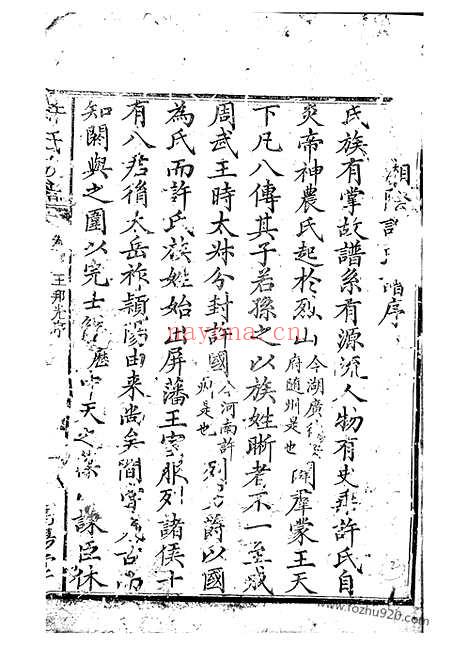 湘陰許氏譜序
氏族有掌故譜系有源流人物有史乘許氏自
炎帝神農氏起於烈山今湖廣府隨州是也開羣蒙王天
下凡八傳其子若孫之以族姓晰者不一至成
周武王時太叔分封於國今河南許州是也列男爵以國
為氏而許氏族姓始正屏藩王室服列諸侯十
有八君脩太岳祚頴陽由來尚矣間嘗
知閼與之圍以完士歷中天之謀臣休
許氏族譜
王邦光序
nayona.cn
www.fozhu797.com